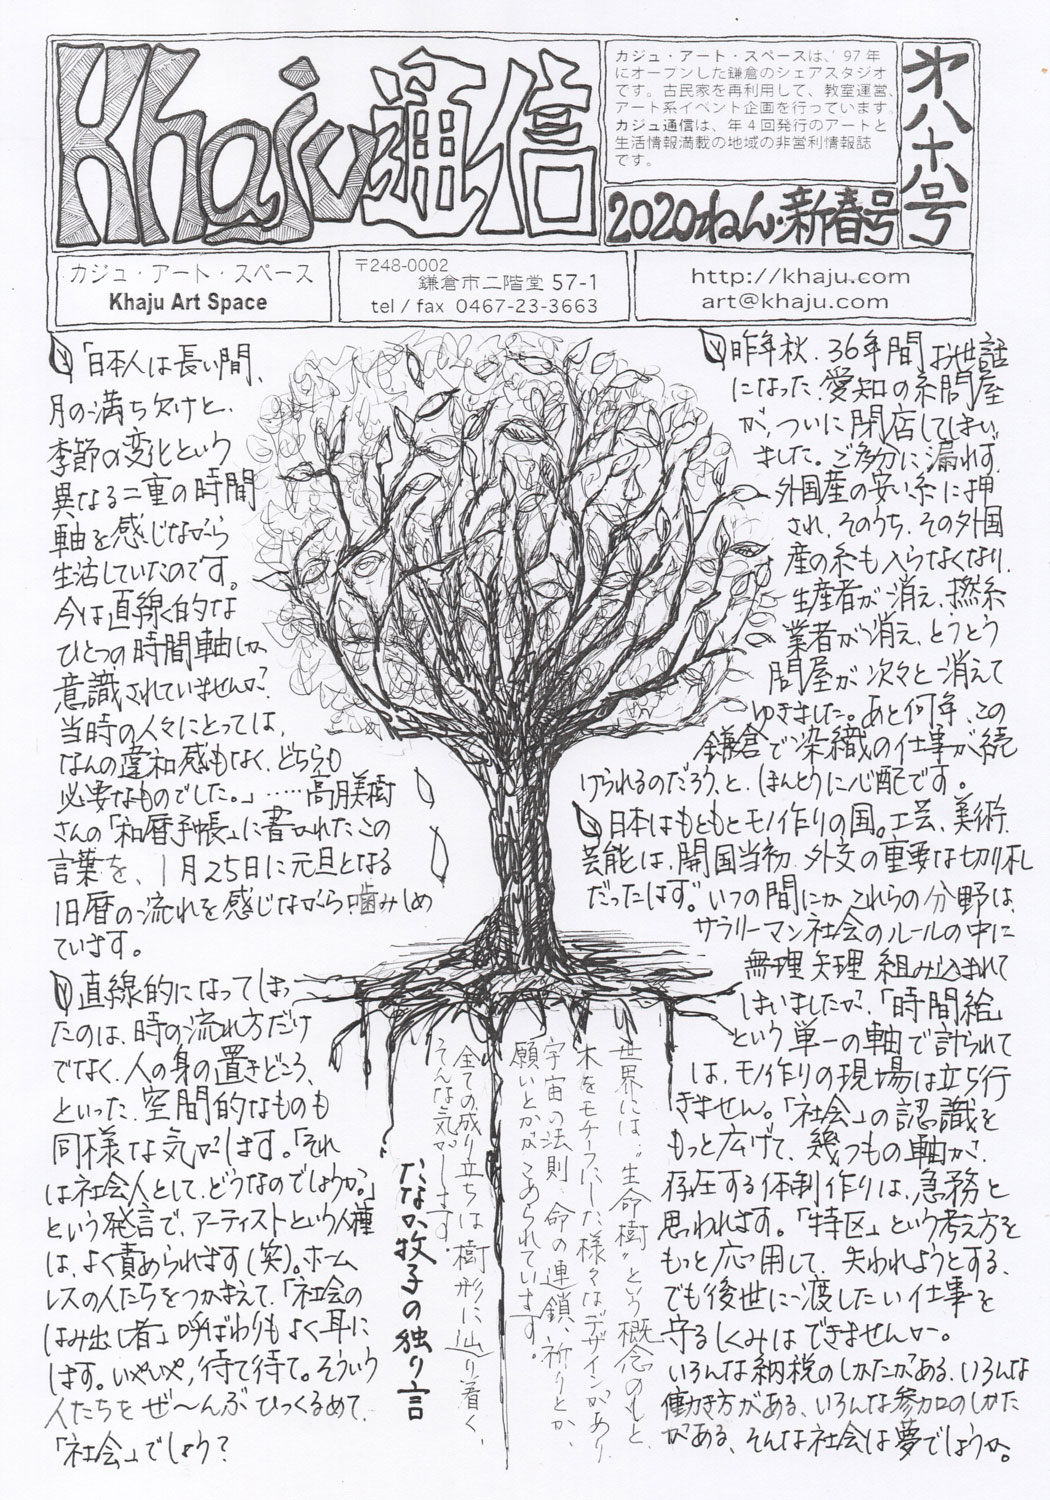 Khaju通信
カジュ・アート・スペースは、'97年
にオープンした鎌倉のシェアスタジオ
です。古民家を再利用して、教室運営、
アート系イベント企画を行っています。
カジュ通信は、年4回発行のアートと
生活情報満載の地域の非営利情報誌
です。
2020ねん・新春号
第八十八号
カジュ・アート・スペース
Khaju Art Space
〒248-0002
鎌倉市二階堂 57-1
tel / fax 0467-23-3663
http://khaju.com
art@khaju.com
「日本人は長い間、
月の満ち欠けと、
季節の変化という
異なる二重の時間
軸を感じながら
生活していたのです。
今は直線的な
ひとつの時間軸しか
意識されていませんが?
当時の人々にとっては、
なんの違和感もなく、どちらも
必要なものでした。」……高月美樹
さんの「和暦手帳」に書かれたこの
言葉を、1月25日に元旦となる
旧暦の流れを感じながら噛みしめ
ています。
直線的になってしまっ
たのは、時の流れ方だけ
でなく、人の身の置きどころ、
といった、空間的なものも
同様な気がします。「それ
は社会人として、どうなのでしょうか。」
という発言で、アーティストという人種
は、よく責められます(笑)。ホーム
レスの人たちをつかまえて、「社会の
はみ出し者」呼ばわりもよく耳に
します。いやいや、待て待て。そういう
人たちをぜ〜んぶひっくるめて、
「社会」でしょう?
昨年秋、36年間お世話
になった、愛知の糸問屋
が、ついに閉店してしまい
ました。ご多分に漏れず、
外国産の安い糸に押
され、そのうち、その外国
産の糸も入らなくなり、
生産者が消え、撚糸
業者が消え、とうとう
問屋が次々と消えて
ゆきました。あと何年、この
鎌倉で染織の仕事が続
けられるのだろう、と、ほんとうに心配です。
日本はもともとモノ作りの国。工芸、美術、
芸能は、開国当初、外交の重要な切り札
だったはず。いつの間にか、これらの分野は、
サラリーマン社会のルールの中に
無理矢理組み込まれて
しまいましたが、「時間給」
という単一の軸で計られて
は、モノ作りの現場は立ち行
きません。「社会」の認識を
もっと広げて、幾つもの軸が、
存在する体制作りは、急務と
思われます。「特区」という考え方を
もっと応用して、失われようとする、
でも後世に渡したい仕事を
守るしくみはできませんか。
いろんな納税のしかたがある、いろんな
働き方がある、いろんな参加のしかた
がある、そんな社会は夢でしょうか。
世界には、"生命樹"という概念のもと、
木をモチーフにした様々なデザインがあり
宇宙の法則、命の連鎖、祈りとか、
願いとかがこめられています。
全ての成り立ちは樹形に辿り着く、
そんな気がします。
たなか牧子の独り言